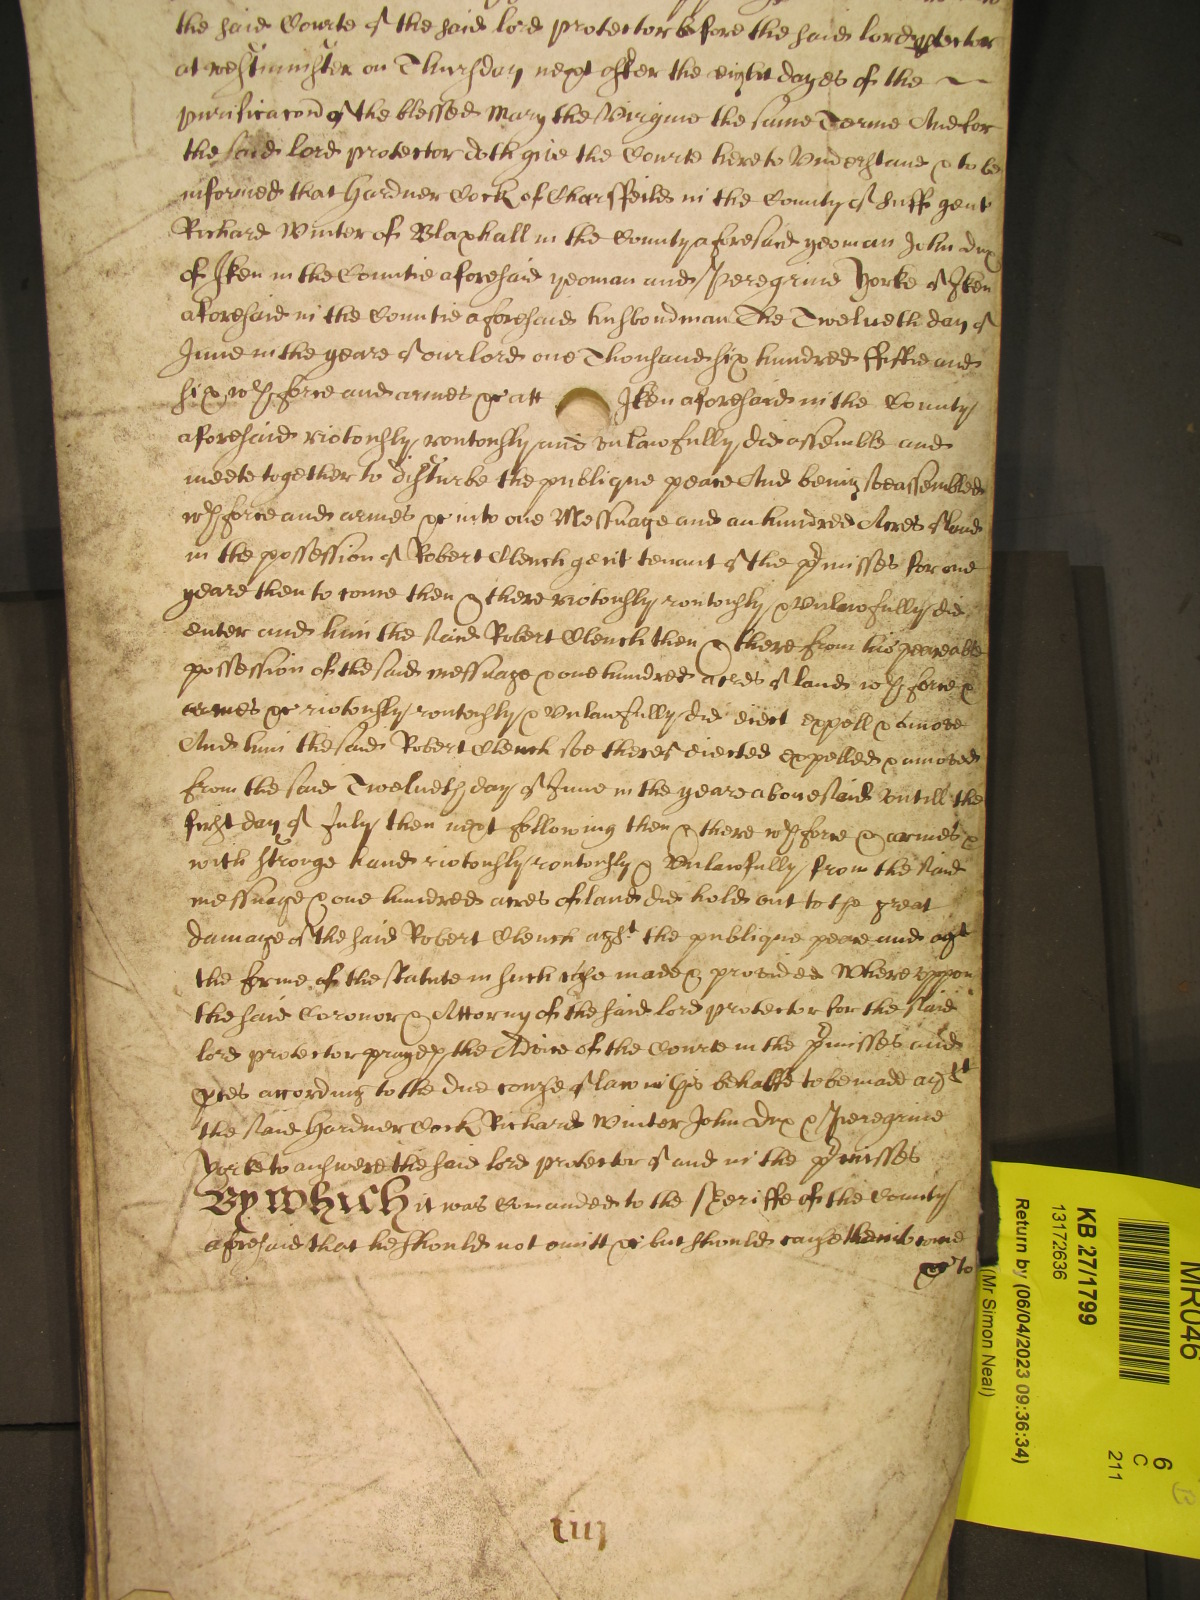 the said Courte of the said lord protector before the said lord protector
at westminster on Thursday next after the eight dayes of the
purificacon of the blessed Mary the Virgine the same Terme And for
the said lord protector doth give the Courte here to Understand & to be
informed that Hardner Cock of Charsfeild in the County of Suff gent
Richard Winter of Blaxhall in the County aforesaid yeoman John Dix
of Iken in the Countie aforesaid yeoman and Peregrine Yorke of Iken
aforesaid in the Countie aforesaid husbondman The Twelueth day of
June in the yeare of our lord one Thousand six hundred fiftie and
six wth force and armes &c att Iken aforesaid in the County
aforesaid riotously routously and unlawfully did assemble and
meete together to disturbe the publique peace And being soe assembled
wth force and armes &c into one Messuage and an hundred Acres of land
in the possession of Robert Clench gent tenant of the pmisses for one
yeare then to come then & there riotously routously & Unlawfully did
enter and him the said Robert Clench then & there from his peaceable
possession of the said messuage & one hundred acres of land wth force &
armes &c riotously routously & Unlawfully did eiect expell & amove
And him the said Robert Clench soe thereof eiected expelled & amoved
from the said Twelueth day of June in the yeare abovesaid untill the
first day of July then next following then & there wth force & armes &
with stronge hand riotously routously & Unlawfully from the said
messuage & one hundred acres of land did hold out to the great
damage of the said Robert Clench agst the publique peace and agst
the forme of the statute in such case made & provided Whereuppon
the said Coronor & Attorny of the said lord protector for the said
lord protector prayeth the Advice of the Courte in the pmisses and
pces according to the due course of law in his behalfe to be made agst
the said Hardner Cock Richard Winter John Dix & Peregrine
Yorke to answere the said lord protector of and in the pmisses
By which it was Comanded to the Sheriffe of the County
aforesaid that he should not omitt &c but should cause them to come
&c to
iiij
MR046
KB 27/1799
13172636
Return by (06/04/2023 09:36:34)
(Mr Simon Neal)
6
C
211